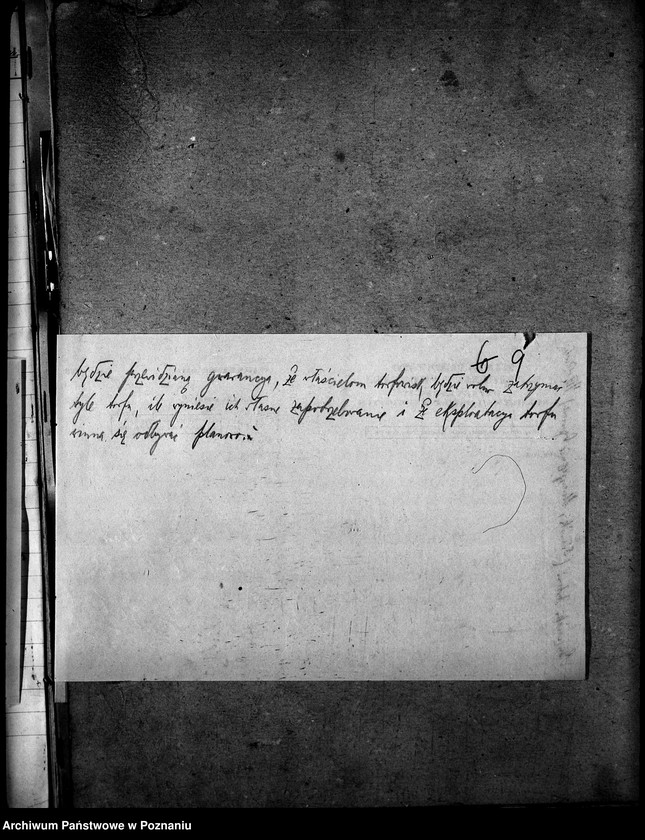 6 9
będzie przewidziana gwarancja, że właścicielom torfowisk będzie wolno zatrzymać
tyle torfu, ile wyniesie ich własne zapotrzebowanie i że eksploatacja torfu
winna się odbywać planowo
Archiwum Państwowe w Poznaniu